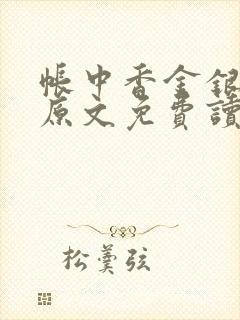 帳中香金銀
原文免費讀
松羹弦